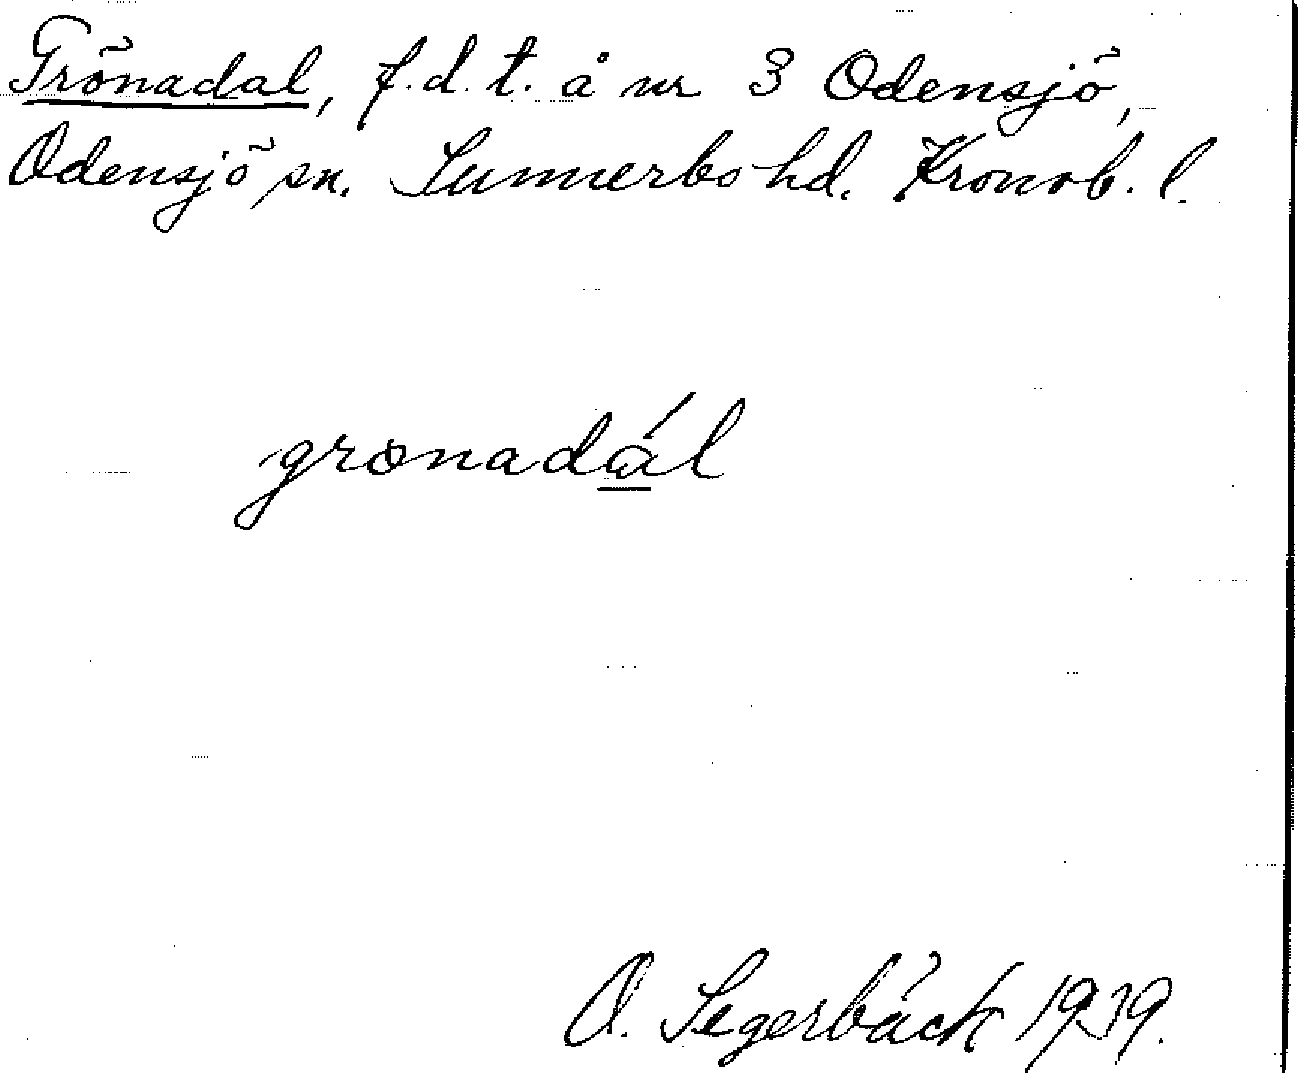 Grönadal, f.d. t. å nr 3 Odensjö,
Odensjö sn. Sunnerbo hd. Kronob. l.
gronadál
O. Segerbäck 1939.